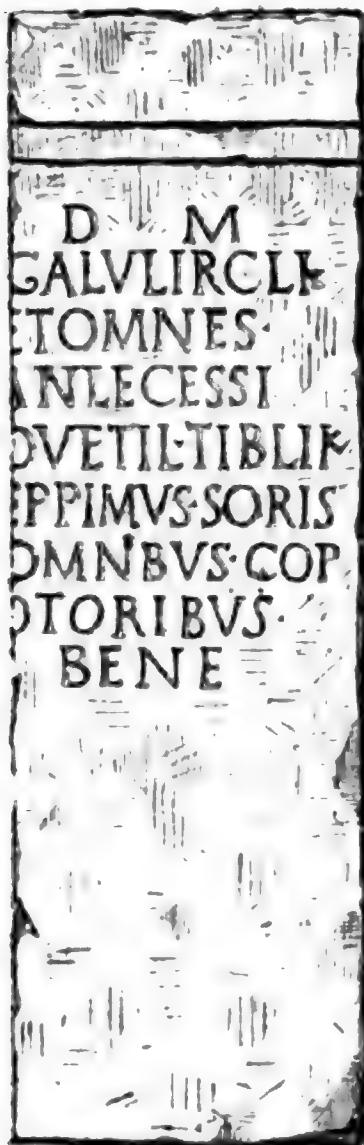 D M
GALVLIRCLI
ETOMNES·
ANLECESSI
OVETIL·TIBLIK
EPPIMVS·SORIS
OMNBVS·COP
OTORIBVS·
BENE